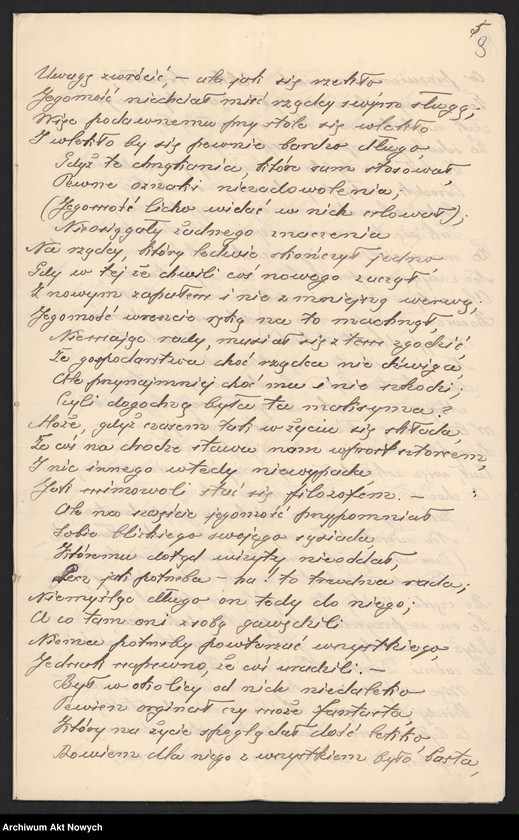 5
3
Uwagę zwrócić, – ale jak się rzekło
Jegomość niechciał mieć rządcy swym sługą,
Więc podawnemu przy stole się wlekło
I wlekło by się pewnie bardzo długo,
Gdyż te chrząkania, które sam stosował,
Pewne oznaki niezadowolenia,
(Jegomość licho widać w nich celował);
Nieosiągały żadnego znaczenia
Na rządcy, który ledwie skończył jedno
Gdy w tej że chwili coś nowego zaczął
Z nowym zapałem i nie z mniejszą werwą;
Jegomość wreszcie ręką na to machnął,
Niemając rady, musiał się z tem zgodzić,
Że gospodarstwa choć rządca nie dźwiga
Ale przynajmniej choć mu i nie szkodzi;
Czyli dogodną była ta maksyma?
Może, gdyż czasem tak w życiu się składa,
Że coś na drodze stawa nam wprost sztorcem,
I nic innego wtedy niewypada
Jak mimowoli stać się filozofem. –
Ale na szczęście jegomość przypomniał
Sobie blizkiego swojego sąsiada
Któremu dotąd wizyty nieoddał,
Lecz jak potrzeba – ha! to trudna rada;
Niemyśląc długo on tedy do niego;
A co tam oni z sobą gawędzili
Niema potrzeby powtarzać wszystkiego,
Jednak zapewno, że coś uradzili. –
Był w okolicy od nich niedaleko
Pewien orginał czy może fantasta,
Który na życie spoglądał dość lekko,
Bowiem dla niego z wszystkiem było basta,
Archiwum Akt Nowych